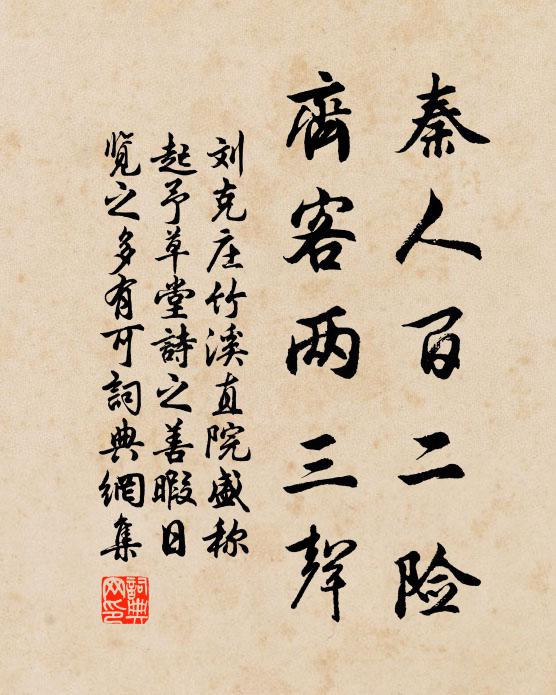 秦人百二险
齊客两三聲
刘克庄竹溪直院盛称
起予草堂詩之善暇日
览之多有可詞典網集
詞典网印